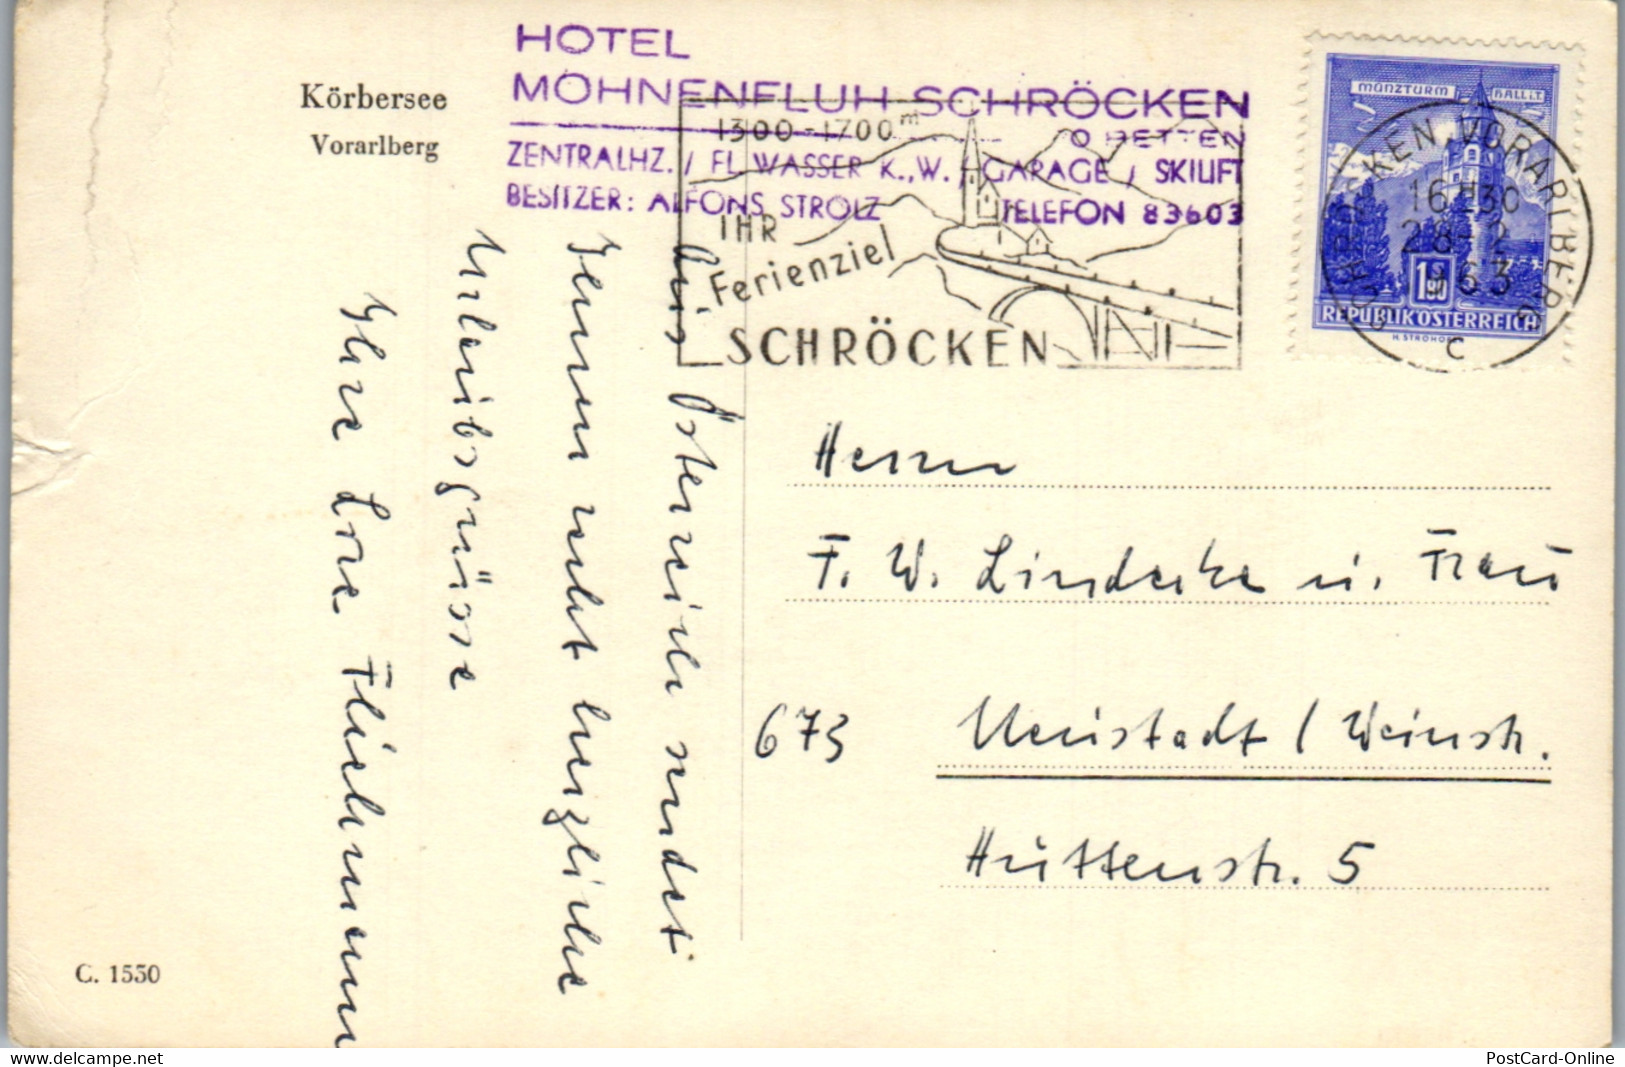 HOTEL
MOHNENFLUH SCHRÖCKEN
O BETTEN
ZENTRALHZ. / FL. WASSER K.,W. / GARAGE / SKILIFT
BESITZER: ALFONS STROLZ TELEFON 83603
Körbersee
Vorarlberg
1300-1700m
IHR
Ferienziel
SCHRÖCKEN
MÜNZTURM HALL i.T.
1.90
REPUBLIK ÖSTERREICH
SCHRÖCKEN, VORARLBERG
16 30
28-2
63
c
Aus Österreich sendet
Ihnen recht herzliche
Urlaubsgrüsse
Ihre Lore
Herrn
F. W. Lindecke u. Frau
673 Neustadt / Weinstr.
Huttenstr. 5
C. 1550
delcampe.net
PostCard-Online